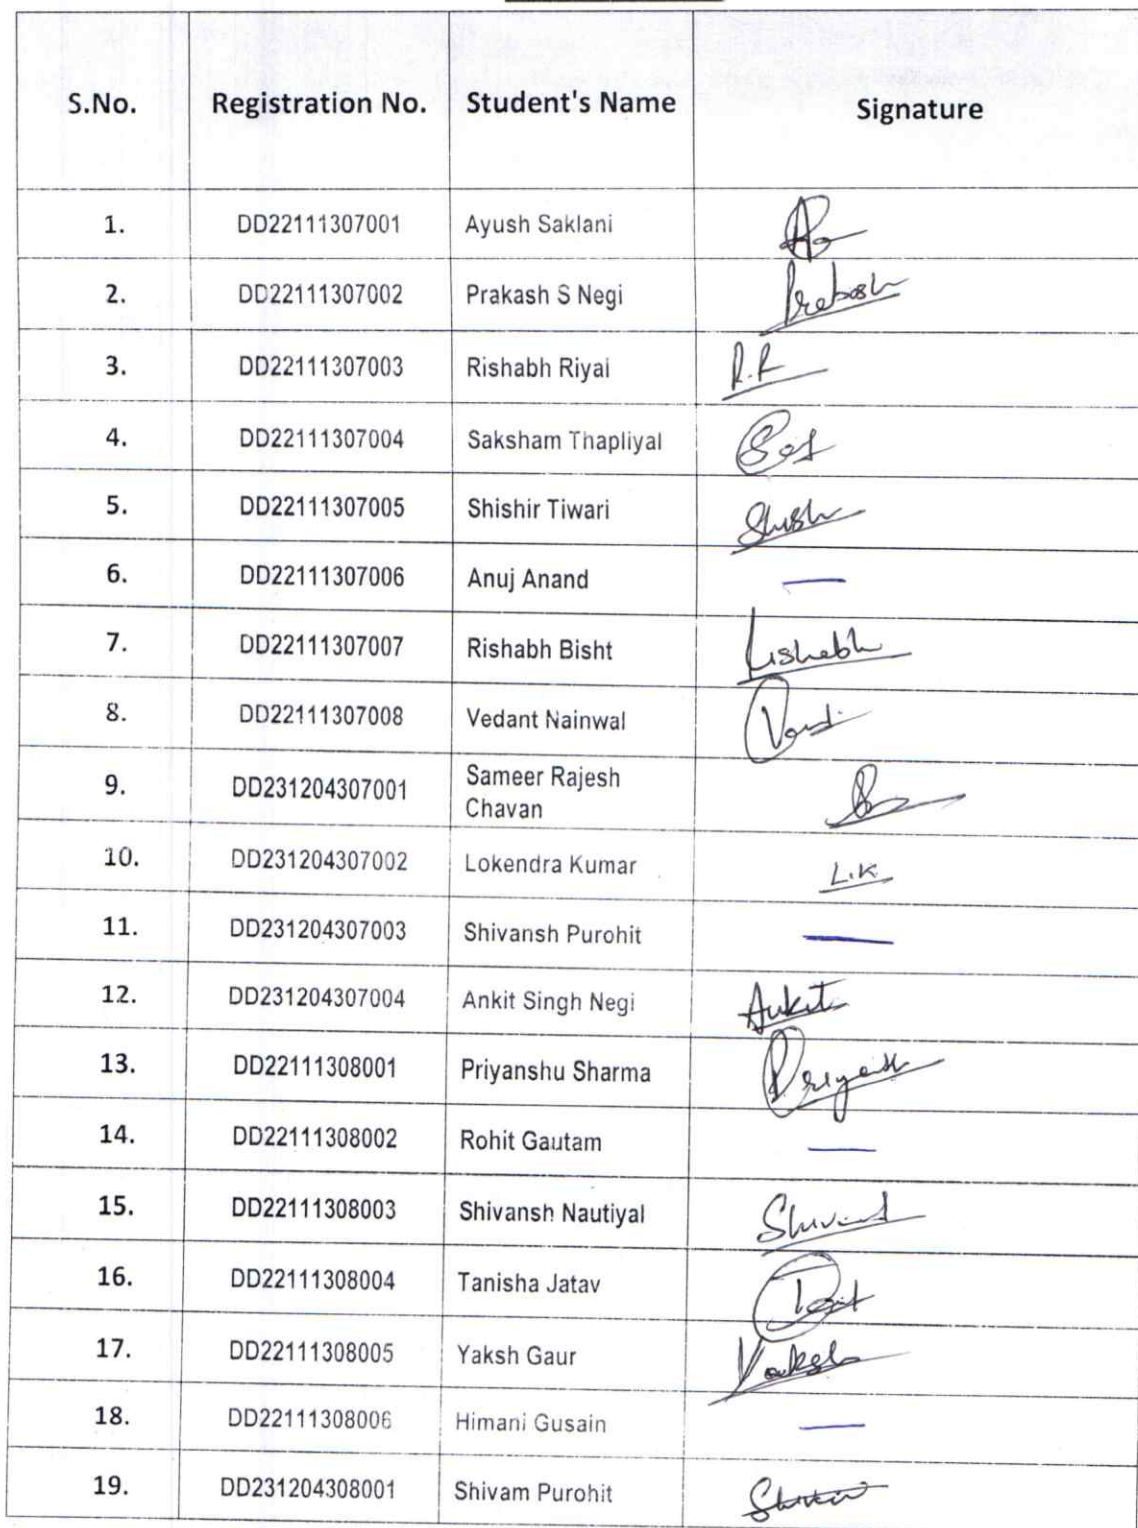 S.No. Registration No. Student's Name Signature
1. DD22111307001 Ayush Saklani
2. DD22111307002 Prakash S Negi Prakash
3. DD22111307003 Rishabh Riyal R.R
4. DD22111307004 Saksham Thapliyal
5. DD22111307005 Shishir Tiwari
6. DD22111307006 Anuj Anand —
7. DD22111307007 Rishabh Bisht Rishabh
8. DD22111307008 Vedant Nainwal
9. DD231204307001 Sameer Rajesh
Chavan
10. DD231204307002 Lokendra Kumar L.K
11. DD231204307003 Shivansh Purohit —
12. DD231204307004 Ankit Singh Negi Ankit
13. DD22111308001 Priyanshu Sharma
14. DD22111308002 Rohit Gautam —
15. DD22111308003 Shivansh Nautiyal
16. DD22111308004 Tanisha Jatav
17. DD22111308005 Yaksh Gaur Yaksh
18. DD22111308006 Himani Gusain —
19. DD231204308001 Shivam Purohit